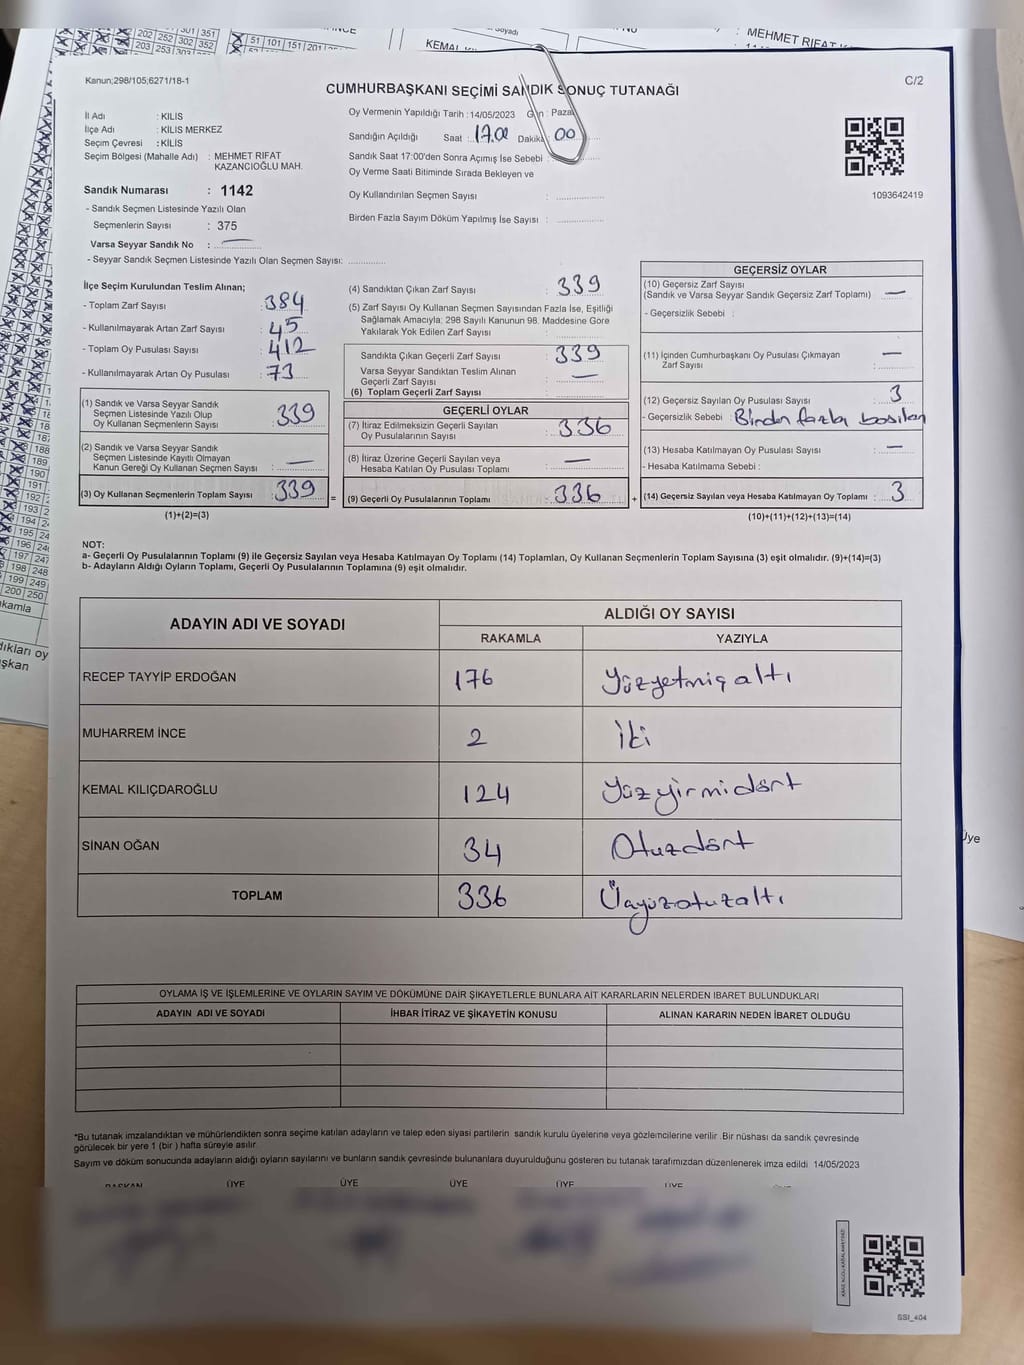 202 252 302 352
203 253 303
51 101 151 201
KEMAL
MEHMET RIFAT
Kanun;298/105;6271/18-1
C/2
CUMHURBAŞKANI SEÇİMİ SANDIK SONUÇ TUTANAĞI
İl Adı : KİLİS
İlçe Adı : KİLİS MERKEZ
Seçim Çevresi : KİLİS
Seçim Bölgesi (Mahalle Adı) : MEHMET RIFAT
KAZANCIOĞLU MAH.
Sandık Numarası : 1142
- Sandık Seçmen Listesinde Yazılı Olan
Seçmenlerin Sayısı : 375
Varsa Seyyar Sandık No : —
- Seyyar Sandık Seçmen Listesinde Yazılı Olan Seçmen Sayısı:
Oy Vermenin Yapıldığı Tarih : 14/05/2023 Gün : Pazar
Sandığın Açıldığı Saat : 17.00 Dakika 00
Sandık Saat 17:00'den Sonra Açımış İse Sebebi :
Oy Verme Saati Bitiminde Sırada Bekleyen ve
Oy Kullandırılan Seçmen Sayısı :
Birden Fazla Sayım Döküm Yapılmış İse Sayısı :
1093642419
İlçe Seçim Kurulundan Teslim Alınan;
- Toplam Zarf Sayısı : 384
- Kullanılmayarak Artan Zarf Sayısı : 45
- Toplam Oy Pusulası Sayısı : 412
- Kullanılmayarak Artan Oy Pusulası : 73
(1) Sandık ve Varsa Seyyar Sandık
Seçmen Listesinde Yazılı Olup
Oy Kullanan Seçmenlerin Sayısı : 339
(2) Sandık ve Varsa Seyyar Sandık
Seçmen Listesinde Kayıtlı Olmayan
Kanun Gereği Oy Kullanan Seçmen Sayısı : —
(3) Oy Kullanan Seçmenlerin Toplam Sayısı : 339
(1)+(2)=(3)
=
(4) Sandıktan Çıkan Zarf Sayısı : 339
(5) Zarf Sayısı Oy Kullanan Seçmen Sayısından Fazla İse, Eşitliği
Sağlamak Amacıyla; 298 Sayılı Kanunun 98. Maddesine Göre
Yakılarak Yok Edilen Zarf Sayısı :
Sandıkta Çıkan Geçerli Zarf Sayısı : 339
Varsa Seyyar Sandıktan Teslim Alınan
Geçerli Zarf Sayısı : —
(6) Toplam Geçerli Zarf Sayısı :
GEÇERLİ OYLAR
(7) İtiraz Edilmeksizin Geçerli Sayılan
Oy Pusulalarının Sayısı : 336
(8) İtiraz Üzerine Geçerli Sayılan veya
Hesaba Katılan Oy Pusulası Toplamı : —
(9) Geçerli Oy Pusulalarının Toplamı : 336
+
GEÇERSİZ OYLAR
(10) Geçersiz Zarf Sayısı
(Sandık ve Varsa Seyyar Sandık Geçersiz Zarf Toplamı) : —
- Geçersizlik Sebebi :
(11) İçinden Cumhurbaşkanı Oy Pusulası Çıkmayan
Zarf Sayısı : —
(12) Geçersiz Sayılan Oy Pusulası Sayısı : 3
- Geçersizlik Sebebi : Birden fazla basılan
(13) Hesaba Katılmayan Oy Pusulası Sayısı : —
- Hesaba Katılmama Sebebi :
(14) Geçersiz Sayılan veya Hesaba Katılmayan Oy Toplamı : 3
(10)+(11)+(12)+(13)=(14)
NOT:
a- Geçerli Oy Pusulalarının Toplamı (9) ile Geçersiz Sayılan veya Hesaba Katılmayan Oy Toplamı (14) Toplamları, Oy Kullanan Seçmenlerin Toplam Sayısına (3) eşit olmalıdır. (9)+(14)=(3)
b- Adayların Aldığı Oyların Toplamı, Geçerli Oy Pusulalarının Toplamına (9) eşit olmalıdır.
ADAYIN ADI VE SOYADI
ALDIĞI OY SAYISI
RAKAMLA YAZIYLA
RECEP TAYYİP ERDOĞAN 176 Yüzyetmiş altı
MUHARREM İNCE 2 İki
KEMAL KILIÇDAROĞLU 124 Yüzyirmidört
SİNAN OĞAN 34 Otuzdört
TOPLAM 336 Üçyüzotuzaltı
OYLAMA İŞ VE İŞLEMLERİNE VE OYLARIN SAYIM VE DÖKÜMÜNE DAİR ŞİKAYETLERLE BUNLARA AİT KARARLARIN NELERDEN İBARET BULUNDUKLARI
ADAYIN ADI VE SOYADI İHBAR İTİRAZ VE ŞİKAYETİN KONUSU ALINAN KARARIN NEDEN İBARET OLDUĞU
*Bu tutanak imzalandıktan ve mühürlendikten sonra seçime katılan adayların ve talep eden siyasi partilerin sandık kurulu üyelerine veya gözlemcilerine verilir .Bir nüshası da sandık çevresinde
görülecek bir yere 1 (bir ) hafta süreyle asılır.
Sayım ve döküm sonucunda adayların aldığı oyların sayılarını ve bunların sandık çevresinde bulunanlara duyurulduğunu gösteren bu tutanak tarafımızdan düzenlenerek imza edildi 14/05/2023
BAŞKAN ÜYE ÜYE ÜYE ÜYE ÜYE
SSI_404
Üye